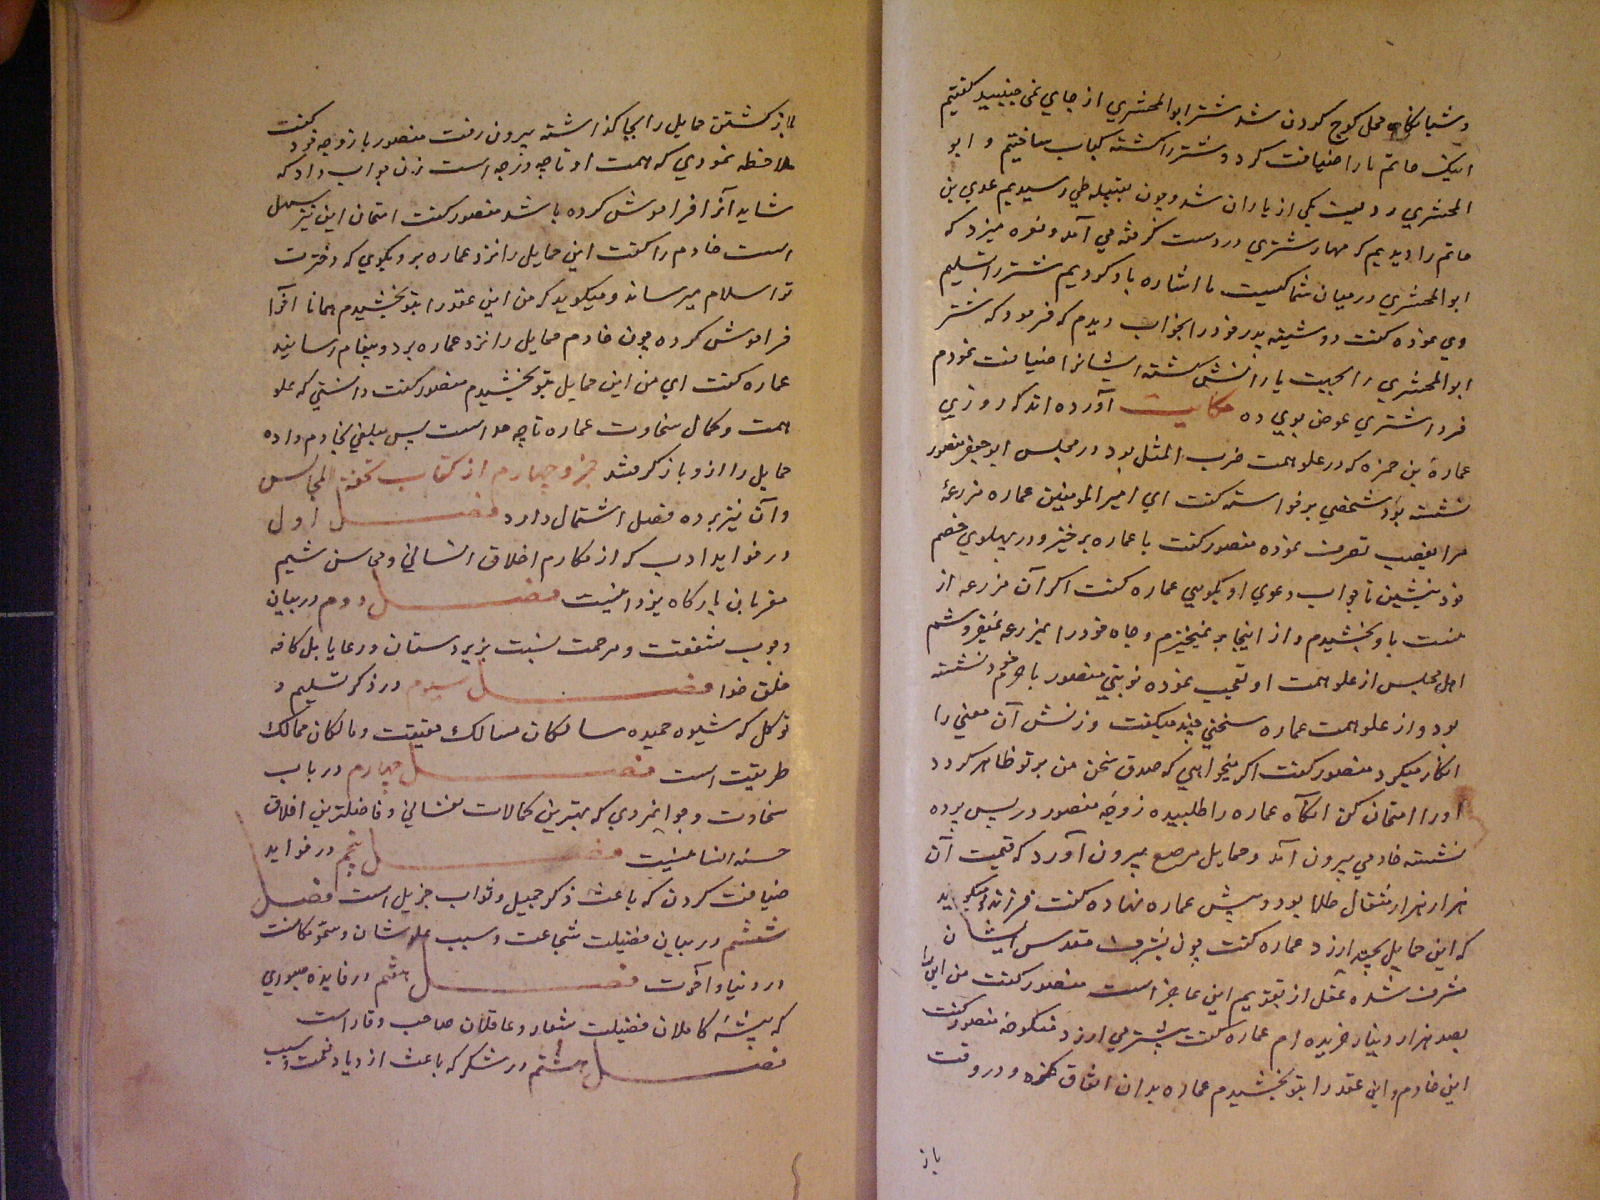 و شبانگاه محل کوچ کردن شد شتر ابوالمحشري از جاي نمي جنبيد گفتيم
اينک حاتم ما را ضيافت کرد و شتر را کشته کباب ساختيم و ابو
المحشري رديف يکي از ياران شد و چون بقبيله طي رسيديم عدي بن
حاتم را ديديم که مهار شتري در دست گرفته مي آمد و نعره ميزد که
ابوالمحشري در ميان شما کيست ما اشاره باو کرديم شتر را تسليم
وي نموده گفت دوشينه پدر خود را بخواب ديدم که فرمود که شتر
ابوالمحشري را بجهت يارانش کشته ايشانرا ضيافت نمودم
فردا شتري عوض بوي ده حکايت آورده اند که روزي
عمارة بن حمزه که در علو همت ضرب المثل بود در مجلس ابوجعفر منصور
نشسته بود شخصي برخواسته گفت اي امير المومنين عماره مزرعهٔ
مرا بغصب تصرف نموده منصور گفت با عماره برخيز و در پهلوي خصم
خود بنشين تا جواب دعوي او بگويي عماره گفت اگر آن مزرعه از
منست باو بخشيدم و از اينجا برنميخيزم و جاه خود را بمزرعه نميفروشم
اهل مجلس از علو همت او تعجب نموده نوبتي منصور با حرم خود نشسته
بود و از علو همت عماره سخني چند ميگفت و زنش آن معني را
انکار ميکرد منصور گفت اگر ميخواهي که صدق سخن من بر تو ظاهر گردد
او را امتحان کن آنگاه عماره را طلبيده زوجهٔ منصور در پس پرده
نشسته خادمي بيرون آمد و حمايل مرصع بيرون آورد که قيمت آن
هزار هزار مثقال طلا بود و پيش عماره نهاده گفت ميگويد
که اين حمايل بچند ارزد عماره گفت چون بشرف مقدس ايشان
مشرف شده عقل از تقويم اين عاجز است منصور گفت من اين را
بصد هزار دينار خريده ام عماره گفت بيشتر مي ارزد منکوحهٔ منصور گفت
اين خادم و اين عقد را بتو بخشيدم عماره بدان التفات نکرده و در وقت
باز
باز گشتن حمايل را آنجا گذاشته بيرون رفت منصور با زوجه خود گفت
ملاحظه نمودي که همت او تا چه درجه است زن جواب داد که
شايد آنرا فراموش کرده باشد منصور گفت امتحان اين نيز سهل
است خادم را گفت اين حمايل را نزد عماره برو بگوي که دخترت
ترا سلام ميرساند و ميگويد که من اين عقد را بتو بخشيدم همانا آنرا
فراموش کرده چون خادم حمايل را نزد عماره برد و پيغام رسانيد
عماره گفت اي من اين حمايل بتو بخشيدم منصور گفت دانستي که علو
همت و کمال سخاوت عماره تا چه حد است پس مبلغي بخادم داده
حمايل را ازو باز گرفتند جزو چهارم از کتاب تحفة المجالس
و آن نيز بر ده فصل اشتمال دارد فصل اول
در فوايد ادب که از مکارم اخلاق انساني و محاسن شيم
مقربان بارگاه يزدانيست فصل دوم در بيان
وجوب شفقت و مرحمت نسبت بزيردستان و رعايا بل کافه
خلق خدا فصل سيوم در ذکر تسليم و
توکل که شيوه حميده سالکان مسالک حقيقت و مالکان ممالک
طريقت است فصل چهارم در باب
سخاوت و جوانمردي که بهترين کمالات نفساني و فاضلترين اخلاق
حسنه انسانيست فصل پنجم در فوايد
ضيافت کردن که باعث ذکر جميل و ثواب جزيل است فصل
ششم در بيان فضيلت شجاعت و سبب علو شان و سمو مکانت
در دنيا و آخرت فصل هفتم در فايده صبوري
که پيشهٔ کاملان فضيلت شعار و عاقلان صاحب وقار است
فصل هشتم در شکر که باعث ازدياد نعمت و سبب